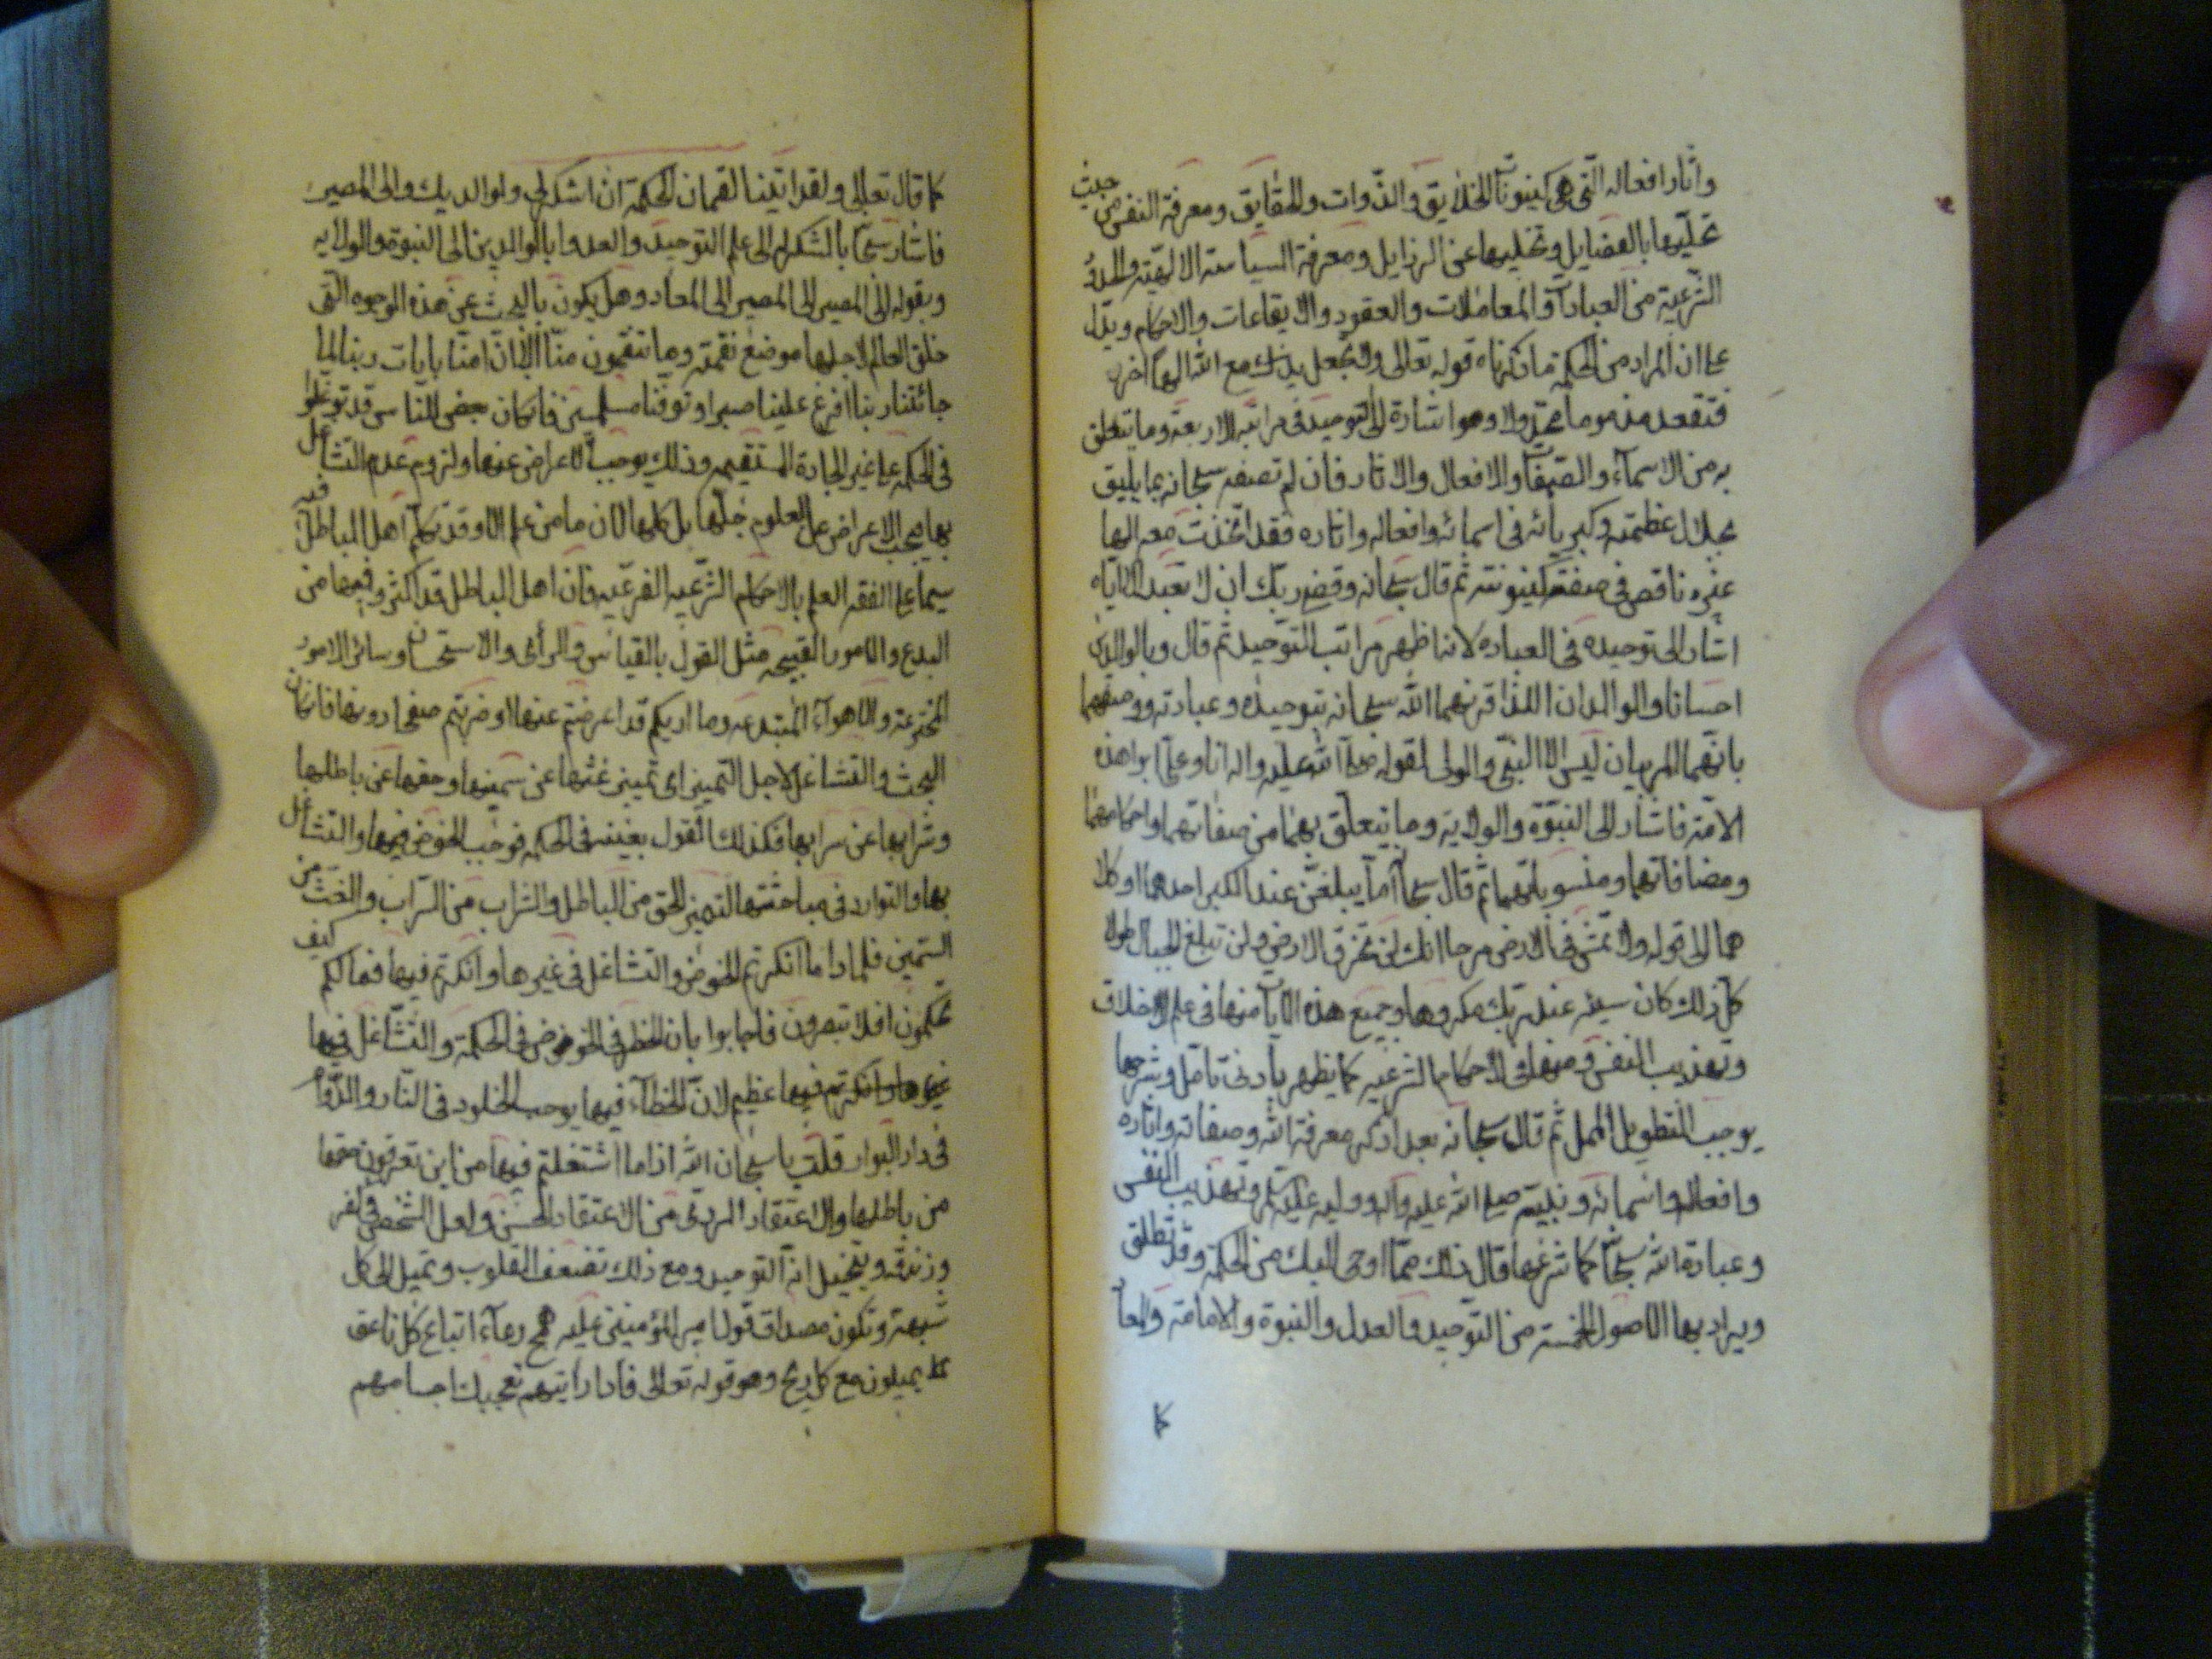 واثار افعاله التى هى كينونات الخلايق والذوات والحقايق ومعرفة النفس من حيث
تحليها بالفضايل وتخليها عن الرزايل ومعرفة السياسة الالهيه والحدود
الشرعية من العبادات والمعاملات والعقود والايقاعات والاحكام ويدل
على ان المراد من الحكمة ما ذكرناه قوله تعالى ولا تجعل مع الله الها اخر
فتقعد مذموما مخذولا وهو اشارة الى التوحيد فى مراتبه الاربعة وما يتعلق
به من الاسماء والصفات والافعال والاثار فان لم تصفه سبحانه بما يليق
بجلال عظمته وكبريائه فى اسمائه وافعاله واثاره فقد اتخذت معه الها
غيره ناقص فى صفة كينونته ثم قال سبحانه وقضى ربك ان لا تعبدوا الا اياه
اشار الى توحيده فى العباده لانها ظهر مراتب التوحيد ثم قال وبالوالدين
احسانا والوالدان اللذا قرنهما الله سبحانه بتوحيده وعبادته ووصفهما
بانهما المربيان ليس الا النبى والولى لقوله صلى الله عليه واله انا وعلى ابوا هذه
الامة فاشار الى النبوة والولاية وما يتعلق بهما من صفاتهما واحكامهما
ومضافاتهما ومنسوباتهما ثم قال سبحانه اما يبلغن عندك الكبر احدهما او كلا
هما الى قوله ولا تمش فى الارض مرحا انك لن تخرق الارض ولن تبلغ الجبال طولا
كل ذلك كان سيئه عند ربك مكروها وجميع هذه الايات منها فى علم الاخلاق
وتهذيب النفس ومنها فى الاحكام الشرعيه كما يظهر بادنى تامل وشرحها
يوجب التطويل الممل ثم قال سبحانه بعد اذكر معرفة الله وصفاته واثاره
وافعاله واسمائه ونبيه صلى الله عليه واله ووليه عليه السلم وتهذيب النفس
وعبادة الله سبحانه كما شرعها قال ذلك مما اوحى اليك من الحكمة وقد تطلق
ويراد بها الاصول الخمسة من التوحيد والعدل والنبوة والامامة والمعاد
كما
كما قال تعالى ولقد اتينا لقمان الحكمة ان اشكر لى ولوالديك والى المصير
فاشار سبحانه بالشكر له الى علم التوحيد والعدل وبالوالدين الى النبوة والولايه
وبقوله الى المصير الى المعاد وهل يكون بالبحث عن هذه الوجوه التى
خلق العالم لاجلها موضع نقمة وما تنقمون منا الا ان امنا بايات ربنا لما
جائتنا ربنا افرغ علينا صبرا وتوفنا مسلمين فان كان بعض الناس قد توغلوا
فى الحكمه على غير الجادة المستقيمه وذلك يوجب الاعراض عنها ولزوم عدم التشاغل
بها يجب الاعراض عن العلوم جلها بل كلها لان ما من علم الا وقد تكلم فيه اهل الباطل
سيما علم الفقه العلم بالاحكام الشرعيه الفرعيه فان اهل الباطل قد اكثروا فيها من
البدع والامور القبيحه مثل القول بالقياس والراى والاستحسان وسائر الامور
المخترعة والاهواء المبتدعه وما اريكم قد اعرضتم عنها او ضربتم صفحا دونها فان كان
البحث والتشاغل لاجل التمييز اى تمييز غثها عن سمينها وحقها عن باطلها
وشرابها عن سرابها فكذلك القول بعينه فى الحكمه فوجب الخوض فيها والتشاغل
بها والتوارد فى مباحثتها لتميز الحق من الباطل والشراب من السراب والغث من
السمين فلما ذا ما انكرتم الخوض والتشاغل فى غيرها وانكرتم فيها فما لكم كيف
تحكمون افلا تبصرون فاجابوا بان الخطر فى الخوض فى الحكمة والتشاغل فيها
غيرها وانكرتم فيها عظيم لان الخطاء فيها يوجب الخلود فى النار والدوام
فى دار البوار قلت يا سبحان الله اذا ما اشتغلتم فيها من اين تعرفون حقها
من باطلها والاعتقاد الردى من الاعتقاد الحسن ولعل الشخص فى كفر
وزندقه ويتخيل انه التوحيد ومع ذلك تضعف القلوب وتميل الى كل
شبهة وتكون مصداق قول امير المؤمنين عليه همج رعاء اتباع كل ناعق
يميلون مع كل ريح وهو قوله تعالى فاذا رايتهم تعجبك اجسامهم